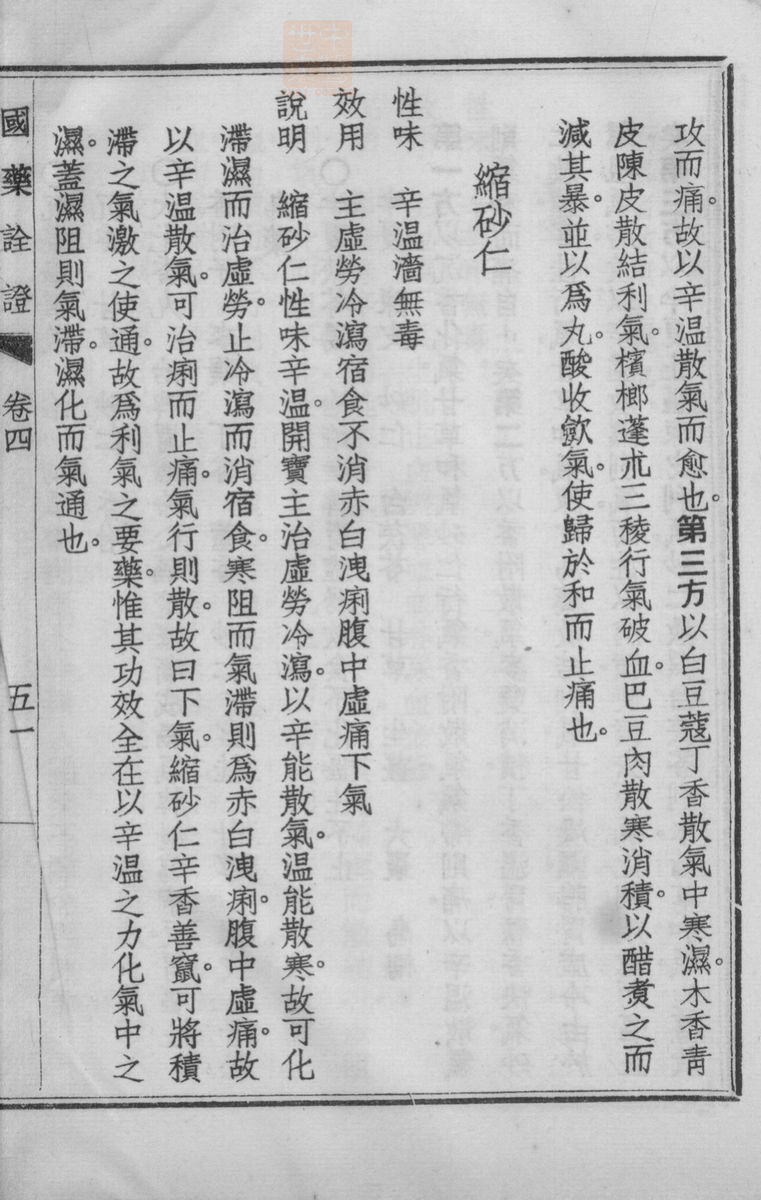 攻而痛。故以辛温散氣而愈也。第三方以白豆蔻丁香散氣中寒濕。木香靑
皮陳皮散結利氣。檳榔蓬朮三稜行氣破血。巴豆肉散寒消積。以醋煑之而
減其暴。並以爲丸。酸收歛氣。使歸於和而止痛也。
縮砂仁
性味　辛温濇無毒
效用　主虛勞冷瀉宿食不消赤白洩痢腹中虛痛下氣
說明　縮砂仁性味辛温。開寶主治虛勞冷瀉。以辛能散氣。温能散寒。故可化
滯濕而治虛勞。止冷瀉而消宿食。寒阻而氣滯則爲赤白洩痢。腹中虛痛。故
以辛温散氣。可治痢而止痛。氣行則散。故曰下氣。縮砂仁辛香善竄。可將積
滯之氣激之使通。故爲利氣之要藥。惟其功效全在以辛温之力化氣中之
濕。蓋濕阻則氣滯。濕化而氣通也。
國藥詮證　卷四　五一